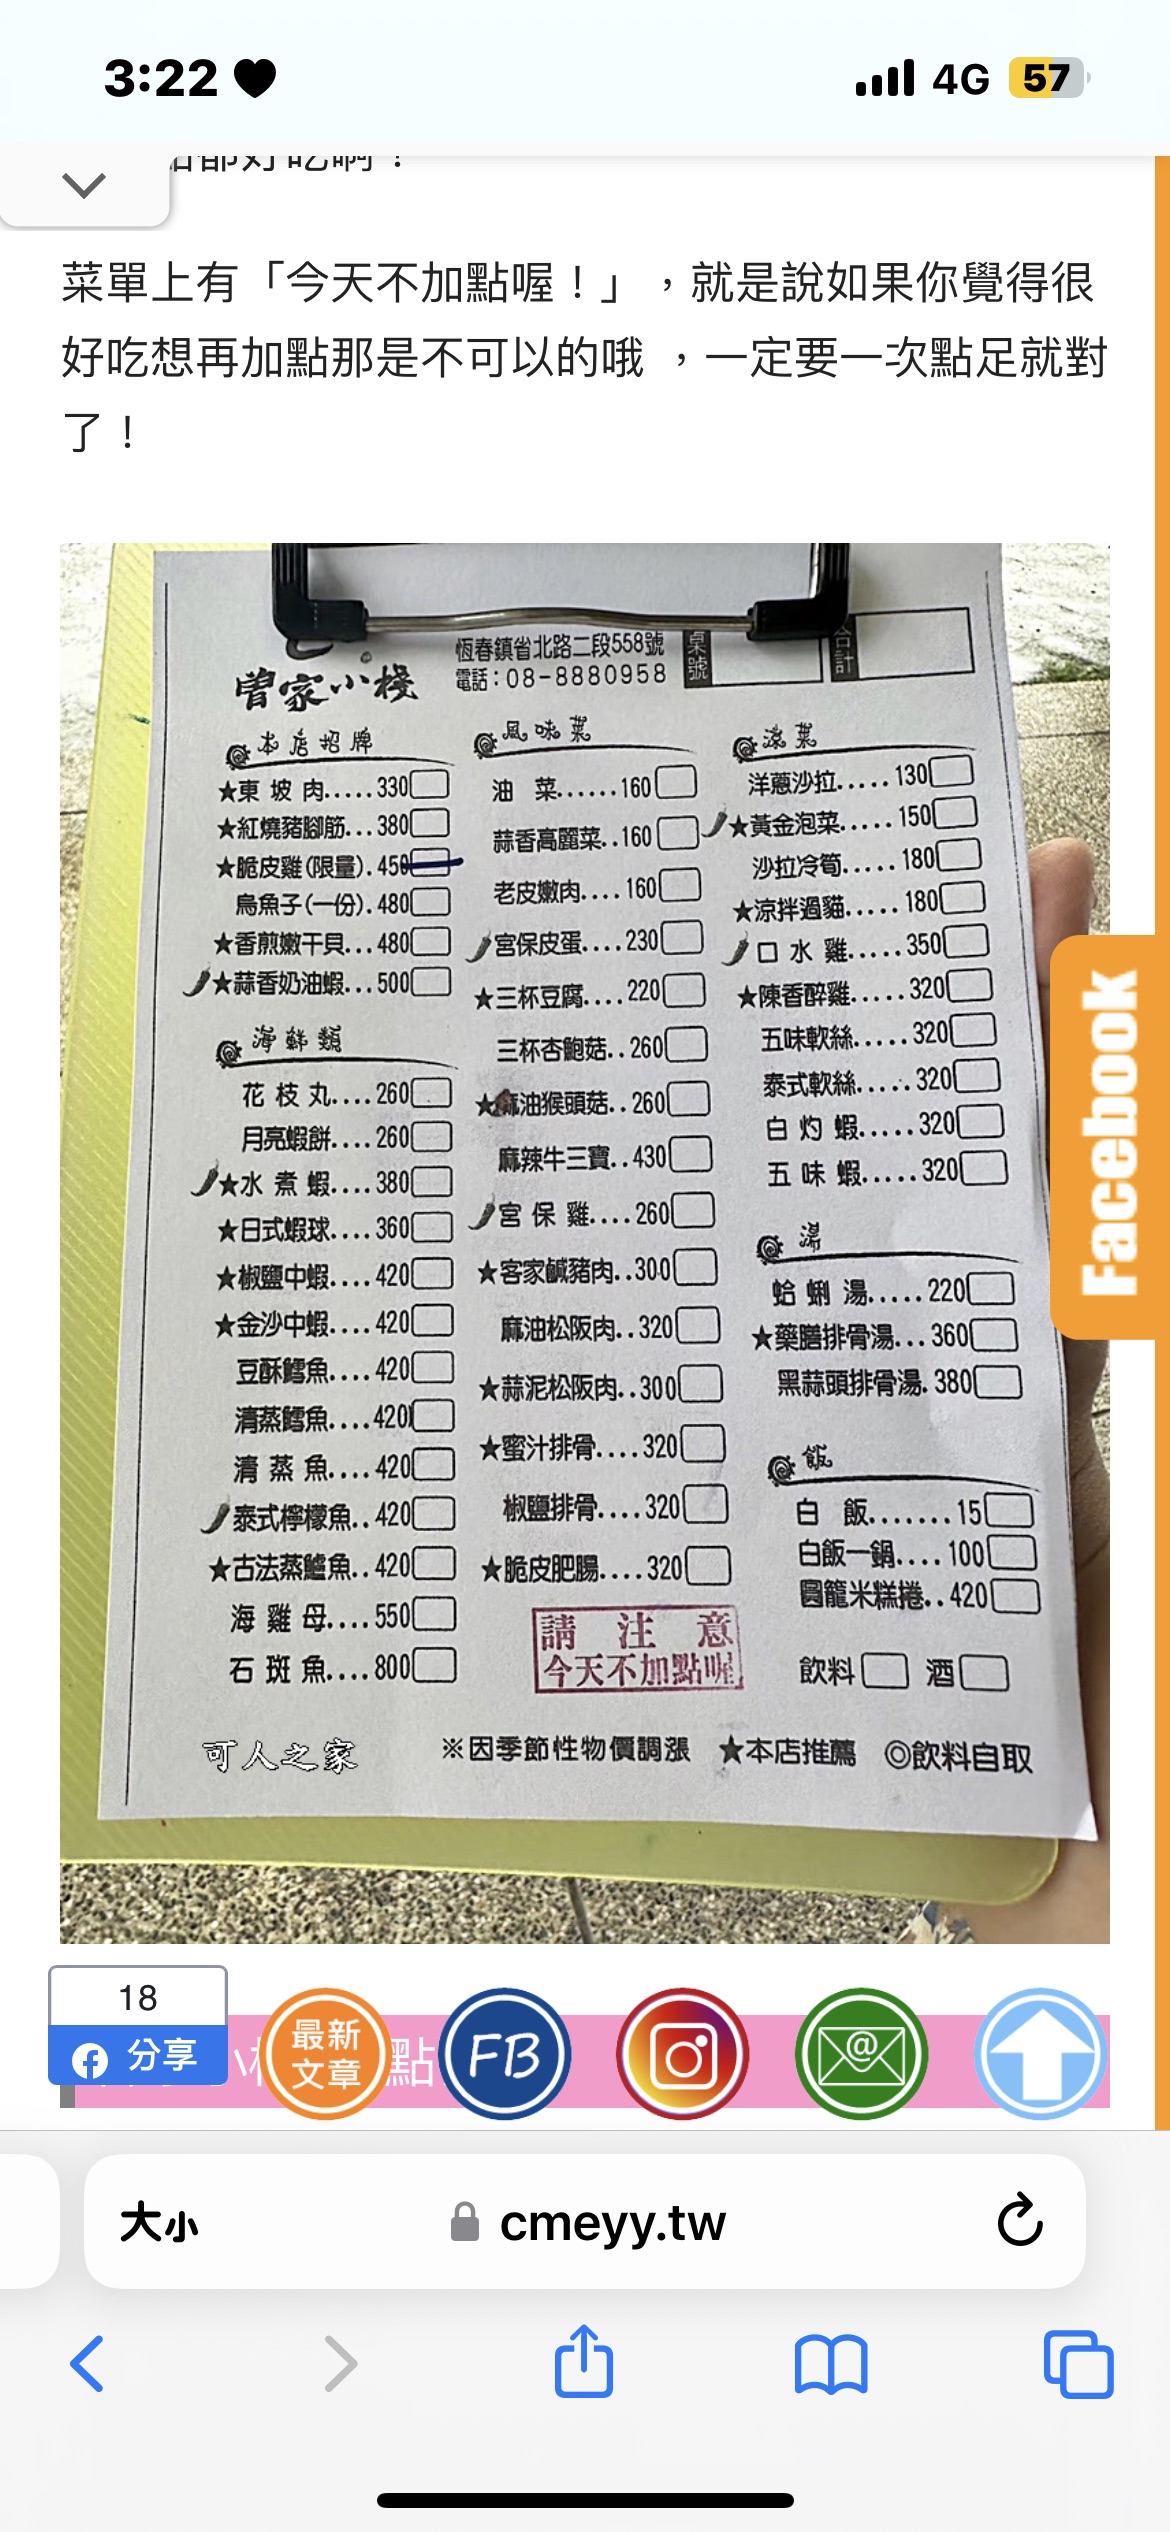 3:22
4G
57
菜單上有「今天不加點喔！」，就是說如果你覺得很
好吃想再加點那是不可以的哦 ，一定要一次點足就對
了！
恆春鎮省北路二段558號
電話：08-8880958
桌號
合計
曾家小棧
本店招牌
★東坡肉.....330
★紅燒豬腳筋...380
★脆皮雞(限量).450
烏魚子(一份).480
★香煎嫩干貝...480
★蒜香奶油蝦...500
海鮮類
花枝丸....260
月亮蝦餅....260
★水煮蝦....380
★日式蝦球....360
★椒鹽中蝦....420
★金沙中蝦....420
豆酥鱈魚....420
清蒸鱈魚....420
清蒸魚....420
泰式檸檬魚..420
★古法蒸鱸魚..420
海雞母....550
石斑魚....800
風味菜
油菜......160
蒜香高麗菜..160
老皮嫩肉....160
宮保皮蛋....230
★三杯豆腐....220
三杯杏鮑菇..260
★麻油猴頭菇..260
麻辣牛三寶..430
宮保雞....260
★客家鹹豬肉..300
麻油松阪肉..320
★蒜泥松阪肉..300
★蜜汁排骨....320
椒鹽排骨....320
★脆皮肥腸....320
請注意
今天不加點喔
涼菜
洋蔥沙拉.....130
★黃金泡菜.....150
沙拉冷筍.....180
★涼拌過貓.....180
口水雞.....350
★陳香醉雞.....320
五味軟絲.....320
泰式軟絲.....320
白灼蝦.....320
五味蝦.....320
湯
蛤蜊湯.....220
★藥膳排骨湯...360
黑蒜頭排骨湯.380
飯
白飯.......15
白飯一鍋....100
圓籠米糕捲..420
飲料 酒
可人之家 ※因季節性物價調漲 ★本店推薦 ◎飲料自取
Facebook
18
分享
最新
文章
點
FB
@
大小
cmeyy.tw